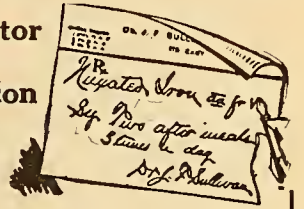 tor
tion
DR. J. F. SULL
EAST
Rx
Nuxated Iron
Sig. Two after meals
3 times a day
Dr. J. F. Sullivan